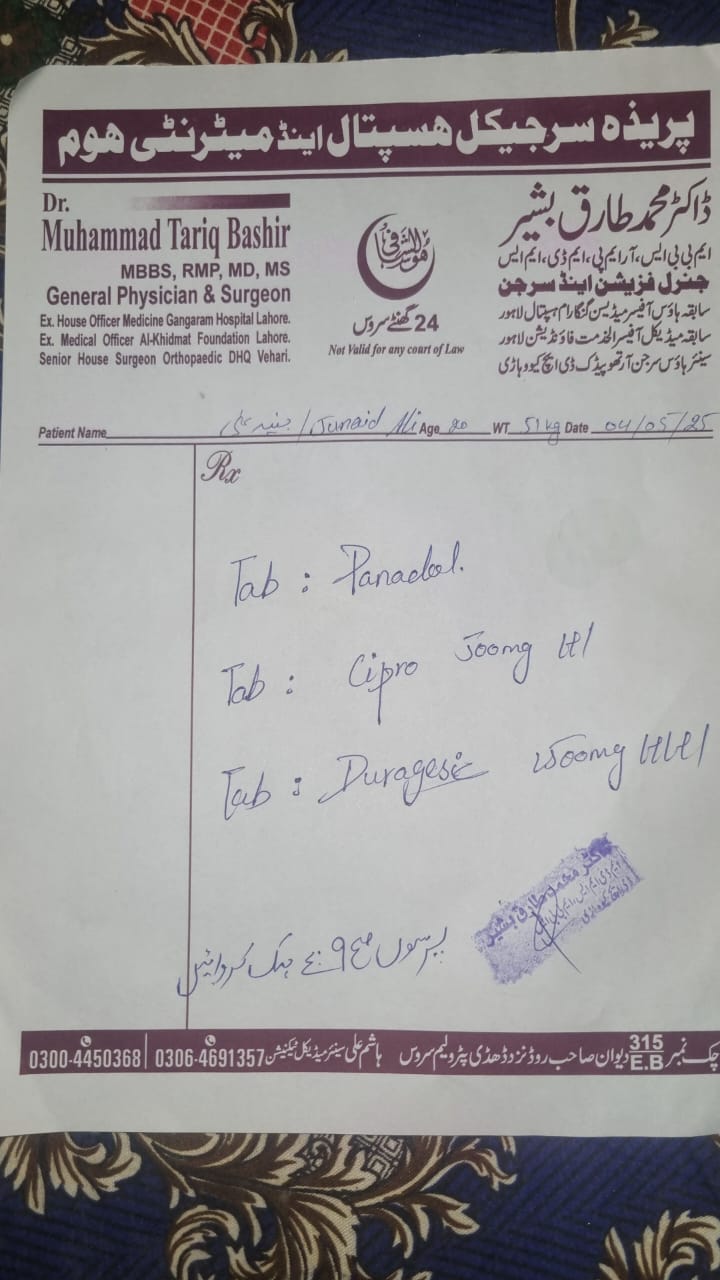 پریذہ سرجیکل ہسپتال اینڈ میٹرنٹی ہوم
Dr.
Muhammad Tariq Bashir
MBBS, RMP, MD, MS
General Physician & Surgeon
Ex. House Officer Medicine Gangaram Hospital Lahore.
Ex. Medical Officer Al-Khidmat Foundation Lahore.
Senior House Surgeon Orthopaedic DHQ Vehari.
ھوالشافی
24 گھنٹے سروس
Not Valid for any court of Law
ڈاکٹر محمد طارق بشیر
ایم بی بی ایس، آر ایم پی، ایم ڈی، ایم ایس
جنرل فزیشن اینڈ سرجن
سابقہ ہاؤس آفیسر میڈیسن گنگا رام ہسپتال لاہور
سابقہ میڈیکل آفیسر الخدمت فاؤنڈیشن لاہور
سینئر ہاؤس سرجن آرتھوپیڈک ڈی ایچ کیو وہاڑی
Patient Name جنید علی / Junaid Ali Age 20 WT 51 kg Date 04/05/25
Rx
Tab : Panadol.
Tab : Cipro
Tab : Duragesic
پرسوں صبح 9 بجے چیک کروائیں
ڈاکٹر محمد طارق بشیر
چک نمبر 315 E.B دیوان صاحب روڈ نزد وڈھڈی پٹرولیم سروس
ہاشم علی سینئر میڈیکل ٹیکنیشن 0306-4691357
0300-4450368